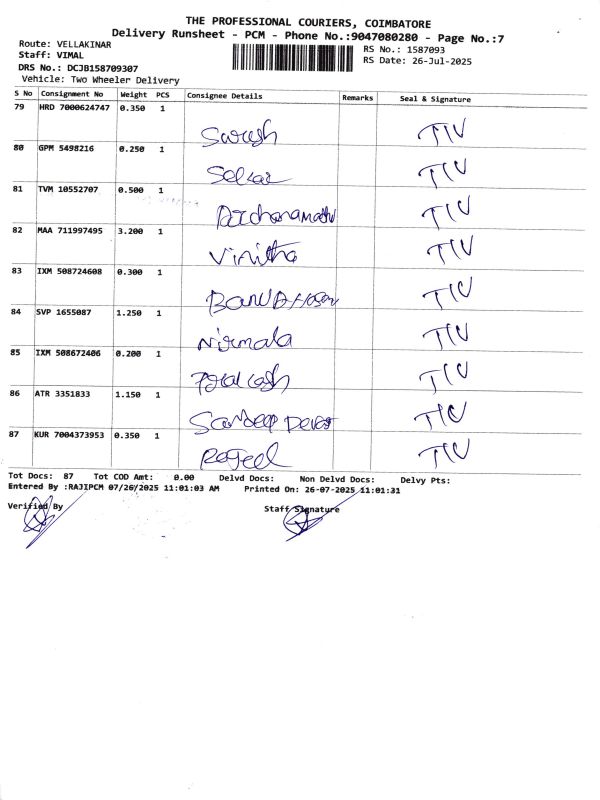 THE PROFESSIONAL COURIERS, COIMBATORE
Delivery Runsheet - PCM - Phone No.:9047080280 - Page No.:7
Route: VELLAKINAR
RS No.: 1587093
Staff: VIMAL
RS Date: 26-Jul-2025
DRS No.: DCJB158709307
Vehicle: Two Wheeler Delivery
S No Consignment No Weight PCS Consignee Details Remarks Seal & Signature
79 HRD 7000624747 0.350 1
Suresh TIV
80 GPM 5498216 0.250 1
TIV
81 TVM 10552707 0.500 1
TIV
82 MAA 711997495 3.200 1
Vinitha TIV
83 IXM 508724608 0.300 1
TIV
84 SVP 1655087 1.250 1
Nirmala TIV
85 IXM 508672406 0.200 1
TIV
86 ATR 3351833 1.150 1
Sandeep TIV
87 KUR 7004373953 0.350 1
TIV
Tot Docs: 87 Tot COD Amt: 0.00 Delvd Docs: Non Delvd Docs: Delvy Pts:
Entered By :RAJIPCM 07/26/2025 11:01:03 AM Printed On: 26-07-2025 11:01:31
Verified By Staff Signature